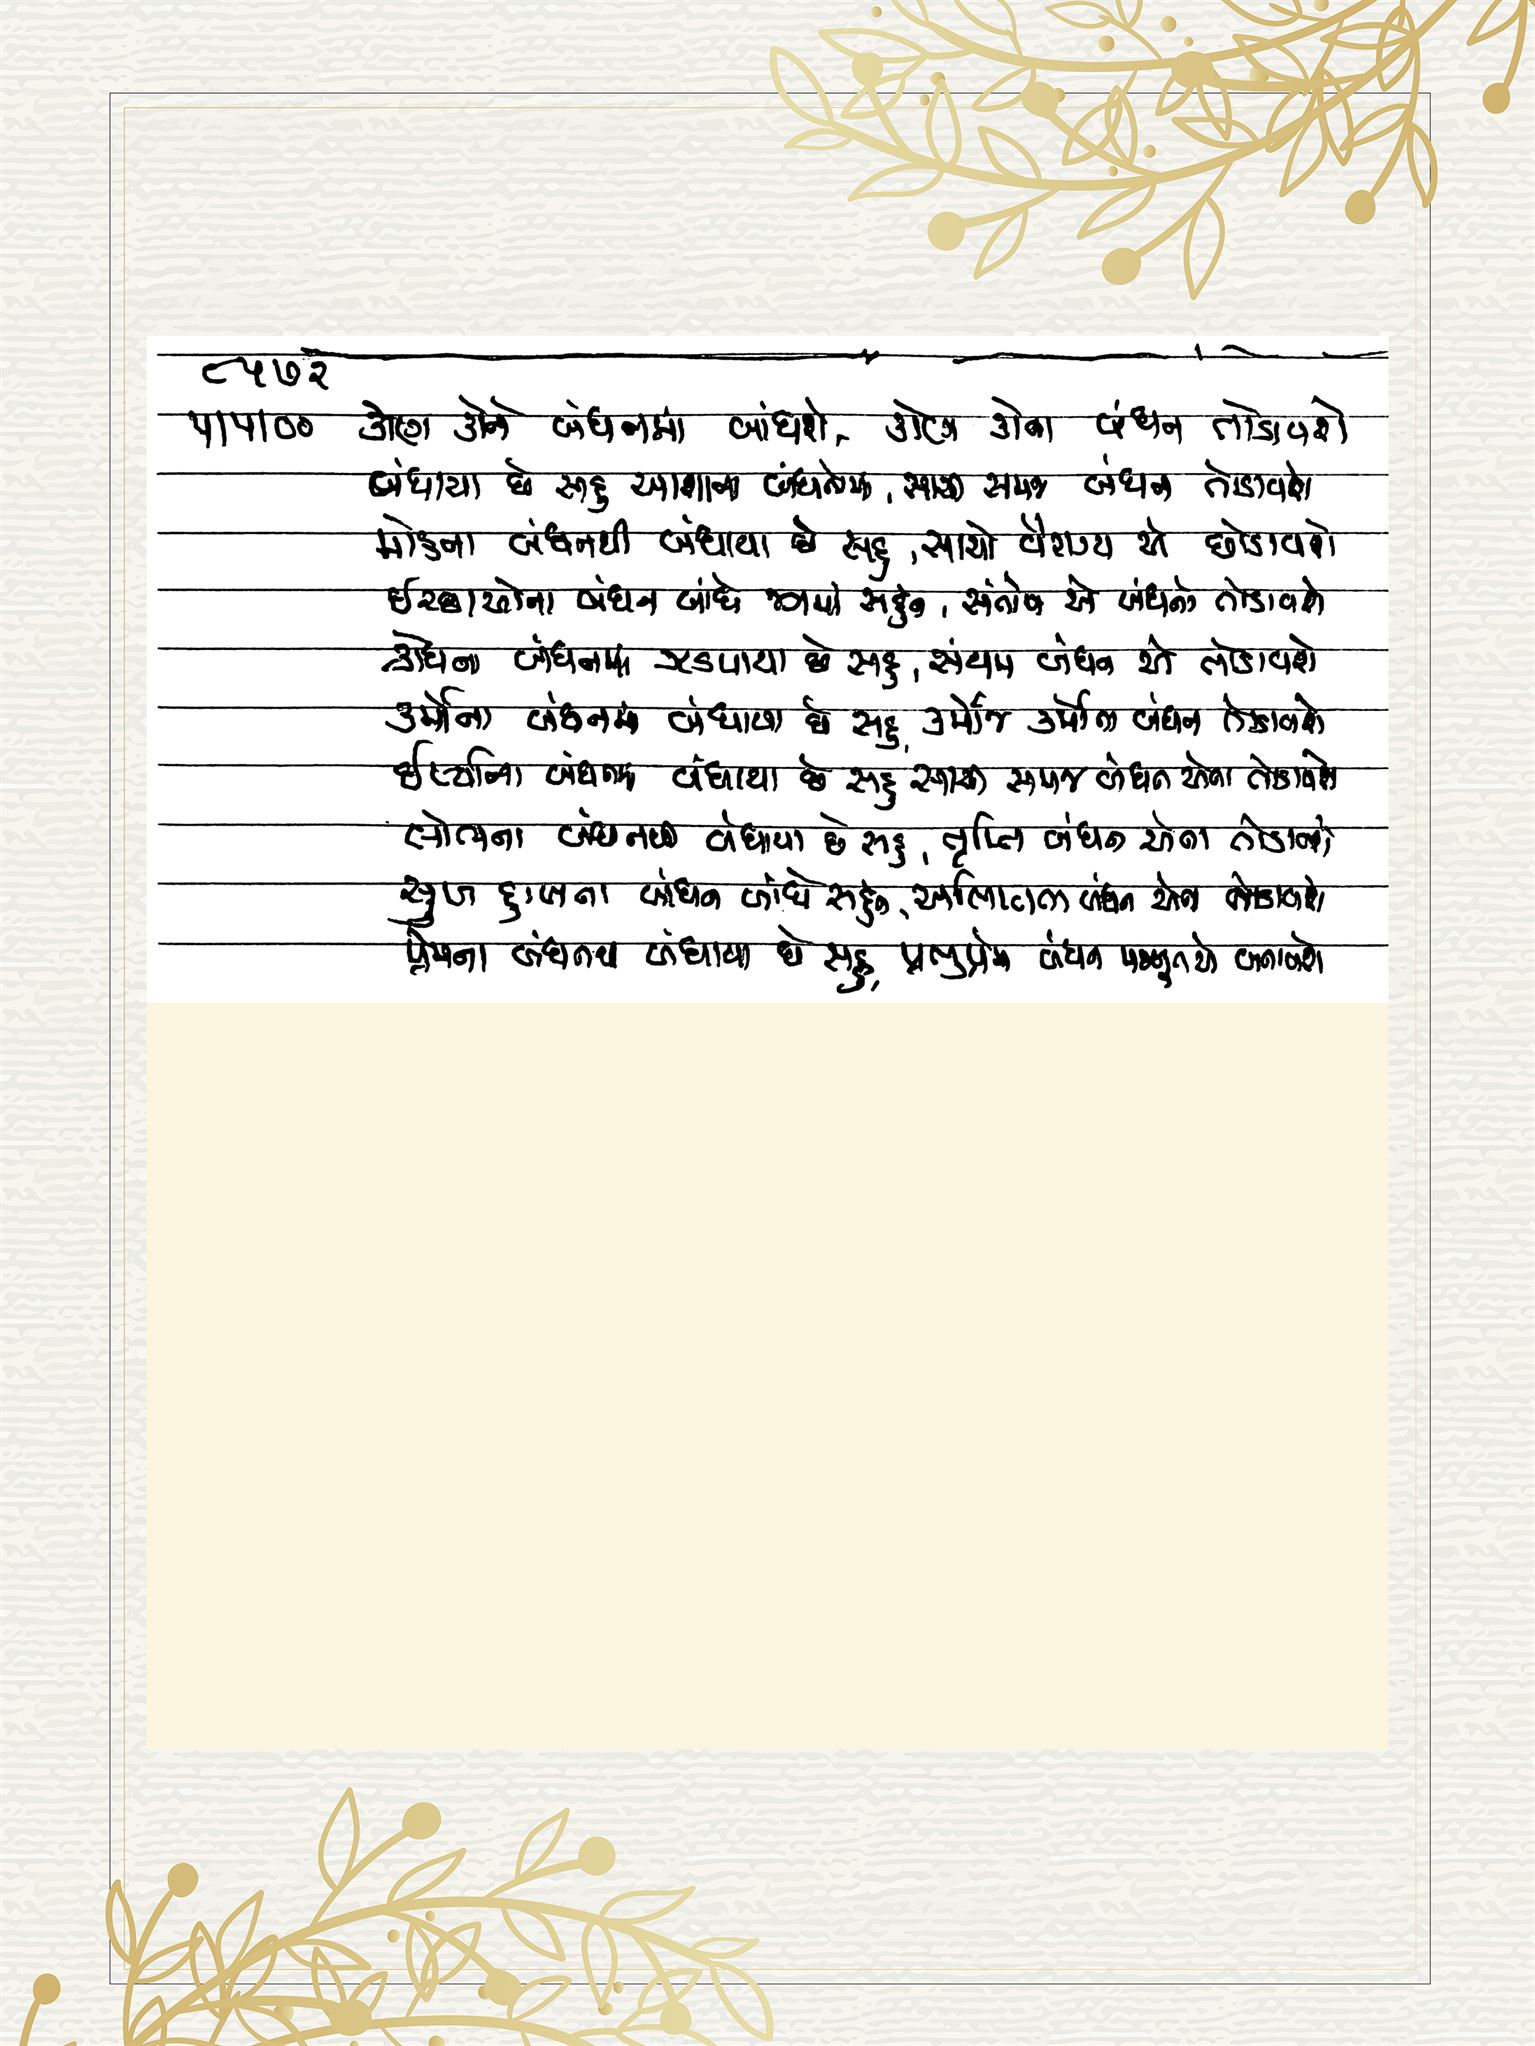 ૮૫૭૨
૫/૫/૦૦ કોણ કોને બંધનમાં બાંધશે, કોણ કોના બંધન તોડાવશે
બંધાયા છે સહુ આશાના બંધનોમાં, સાચી સમજ બંધન તોડાવશે
મોહના બંધનથી બંધાયા છે સહુ, સાચો વૈરાગ્ય એ છોડાવશે
ઈચ્છાઓના બંધન બાંધે જગમાં સહુને, સંતોષ એ બંધનો તોડાવશે
ક્રોધના બંધનમાં જકડાયા છે સહુ, સંયમ બંધન એ તોડાવશે
કર્મોના બંધનમાં બંધાયા છે સહુ, કર્મોજ કર્મોના બંધન તોડાવશે
ઈર્ષ્યાના બંધનમાં બંધાયા છે સહુ સાચી સમજ બંધન એના તોડાવશે
લોભના બંધનથી બંધાયા છે સહુ, તૃપ્તિ બંધન એના તોડાવશે
સુખ દુઃખના બંધન બાંધે સહુને, બંધન એના તોડાવશે
પ્રેમના બંધનમાં બંધાયા છે સહુ, પ્રભુપ્રેમ બંધન મજબૂત એ બનાવશે